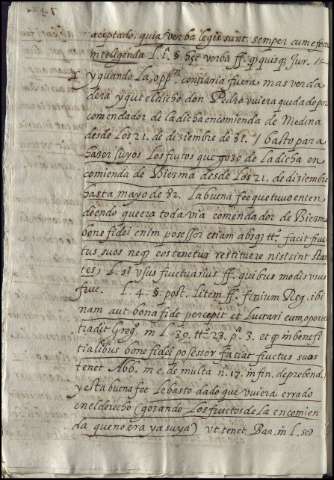 aceptado, quia verba legis sunt semper cum effectu
intelligenda L. 1. § hæc verba ff. qd quisq. Jur.
y quando la opp.on contraria fuera mas verda
dera y que el dicho don Pedro uviera quedado por
comendador de la dicha encomienda de Medina
desde los 21. de diziembre de 81. basto para
haber suyos los fructos que gozo de la dicha en
comienda de Biezma desde los 21. de diziembre
hasta mayo de 82. La buena fee que tuvo enten
diendo que era todavia comendador de Biezma
bonæ fidei enim possesor etiam absq. tt.º facit fruc
tus suos neq. eos tenetur restituere nisi sint stan
tes L. si usus fructuarius ff. quibus modis usus
fruc. L. 4. § post. litem ff. finium Reg. ibi
nam aut bona fide percepit et lucrari eum oportet
tradit Greg. in L. 39. tt.º 23. p.ª 3. et in benefi
tialibus bonæ fidei possesor faciat fructus suos
tenet Abb. in c. de multa n. 17. in fin. de prebend.
y esta buena fee le basto dado que uviera errado
en el derecho (gozando los fructos de la encomien
da que no era ya suya) ut tenet Bar. in L. sed